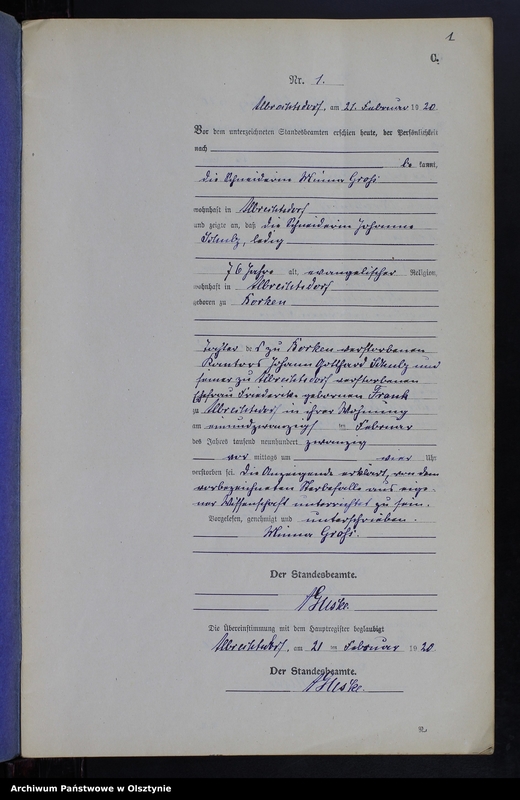 1
C.
Nr. 1.
Albrechtsdorf, am 21. Februar 1920
Vor dem unterzeichneten Standesbeamten erschien heute, der Persönlichkeit
nach
be kannt,
die Schneiderin Minna Groß
wohnhaft in Albrechtsdorf
und zeigte an, daß die Schneiderin Johanne
Schulz, ledig
76 Jahre alt, evangelischer Religion,
wohnhaft in Albrechtsdorf
geboren zu Borken
Tochter des zu Borken verstorbenen
Kantors Johann Gotthard Schulz und
seiner zu Albrechtsdorf verstorbenen
Ehefrau Friedericke gebornen Frank
zu Albrechtsdorf in ihrer Wohnung
am einundzwanzigst ten Februar
des Jahres tausend neunhundert zwanzig
vor mittags um vier Uhr
verstorben sei. Die Anzeigende erklärt, von dem
vorbezeichneten Sterbefalle aus eige-
ner Wissenschaft unterrichtet zu sein.
Vorgelesen, genehmigt und unterschrieben.
Minna Groß.
Der Standesbeamte.
Die Übereinstimmung mit dem Hauptregister beglaubigt
Albrechtsdorf, am 21 ten Februar 1920
Der Standesbeamte.
Archiwum Państwowe w Olsztynie